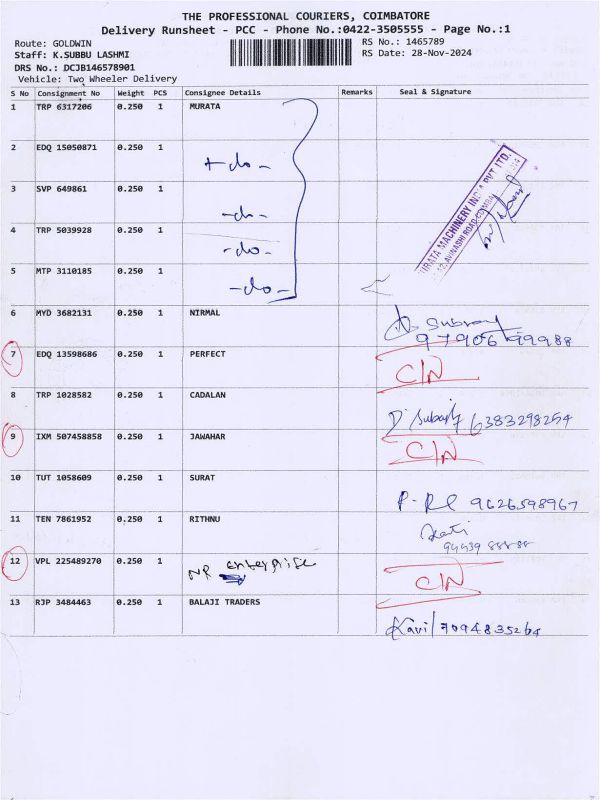 THE PROFESSIONAL COURIERS, COIMBATORE
Delivery Runsheet - PCC - Phone No.:0422-3505555 - Page No.:1
Route: GOLDWIN
RS No.: 1465789
Staff: K.SUBBU LASHMI
RS Date: 28-Nov-2024
DRS No.: DCJB146578901
Vehicle: Two Wheeler Delivery
S No Consignment No Weight PCS Consignee Details Remarks Seal & Signature
1 TRP 6317206 0.250 1 MURATA
2 EDQ 15050871 0.250 1
-do-
3 SVP 649861 0.250 1
-do-
4 TRP 5039928 0.250 1
-do-
5 MTP 3110185 0.250 1
-do-
MACHINERY INDIA PVT LTD.
AVINASHI ROAD,
6 MYD 3682131 0.250 1 NIRMAL
97906 99988
7 EDQ 13598686 0.250 1 PERFECT
C/N
8 TRP 1028582 0.250 1 CADALAN
6383298254
9 IXM 507458858 0.250 1 JAWAHAR
C/N
10 TUT 1058609 0.250 1 SURAT
9626598967
11 TEN 7861952 0.250 1 RITHNU
12 VPL 225489270 0.250 1 NR enterprise
C/N
13 RJP 3484463 0.250 1 BALAJI TRADERS
Kavi/7094835264